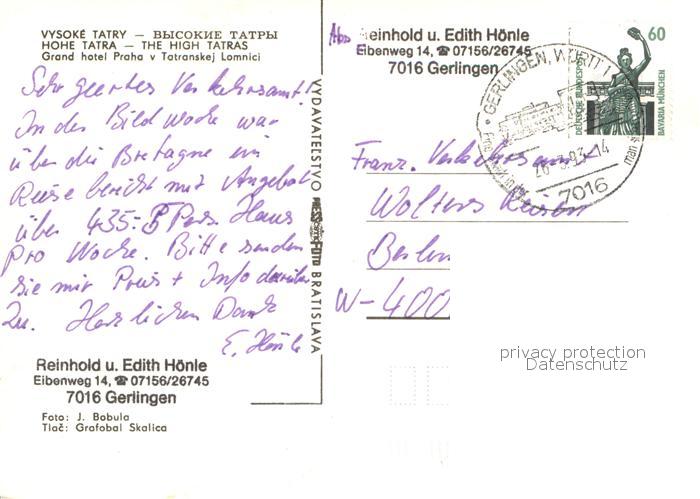 VYSOKÉ TATRY — ВЫСОКИЕ ТАТРЫ
HOHE TATRA — THE HIGH TATRAS
Grand hotel Praha v Tatranskej Lomnici
Sehr geertes Verkehrsamt!
In der Bild woche war
über die Bretagne ein
Reise bericht mit Angebot
über 435.- 5 Pers. Haus
pro Woche. Bitte senden
sie mir Preis + Info darüber
zu. Herzlichen Dank
E. Hönle
Reinhold u. Edith Hönle
Eibenweg 14, ☎ 07156/26745
7016 Gerlingen
Foto: J. Bobula
Tlač: Grafobal Skalica
VYDAVATEĽSTVO
FOTO BRATISLAVA
Abs
Reinhold u. Edith Hönle
Eibenweg 14, ☎ 07156/26745
7016 Gerlingen
60
DEUTSCHE BUNDESPOST
BAVARIA MÜNCHEN
GERLINGEN, WÜRTT
93.-14
7016
Franz. Verkehrsamt
Wolters Reisen
Berlin
W-400
privacy protection
Datenschutz